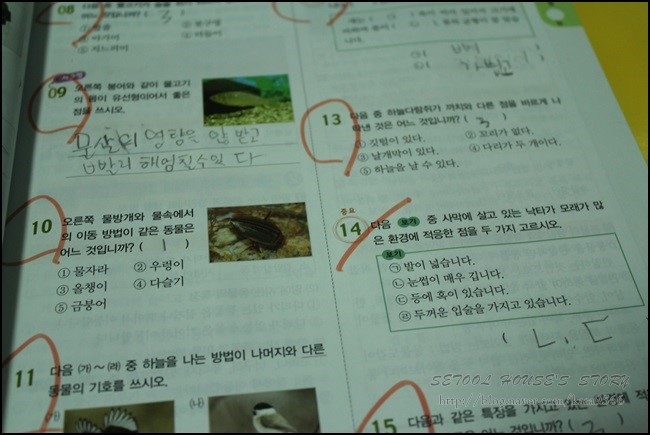 08
( 3 )
③ 가자미
⑤ 저느러미
09 오른쪽 붕어와 같이 물고기
의 몸이 유선형이어서 좋은
점을 쓰시오.
물살의 영향을 안 받고
빨리 헤엄칠수있다
10 오른쪽 물방개와 물속에서
의 이동 방법이 같은 동물은
어느 것입니까? ( 1 )
① 물자라 ② 우렁이
③ 올챙이 ④ 다슬기
⑤ 금붕어
11 다음 ㈎~㈑ 중 하늘을 나는 방법이 나머지와 다른
동물의 기호를 쓰시오.
㈏
13 다음 중 하늘다람쥐가 까치와 다른 점을 바르게 나
타낸 것은 어느 것입니까? ( 3 )
① 깃털이 있다. ② 꼬리가 없다.
③ 날개막이 있다. ④ 다리가 두 개이다.
⑤ 하늘을 날 수 있다.
중요
14 다음 보기 중 사막에 살고 있는 낙타가 모래가 많
은 환경에 적응한 점을 두 가지 고르시오.
보기
㉠ 발이 넓습니다.
㉡ 눈썹이 매우 깁니다.
㉢ 등에 혹이 있습니다.
㉣ 두꺼운 입술을 가지고 있습니다.
( ㄴ, ㄷ
SETOOL HOUSE'S STORY
15 다음과 같은 특징을 가지고 있는